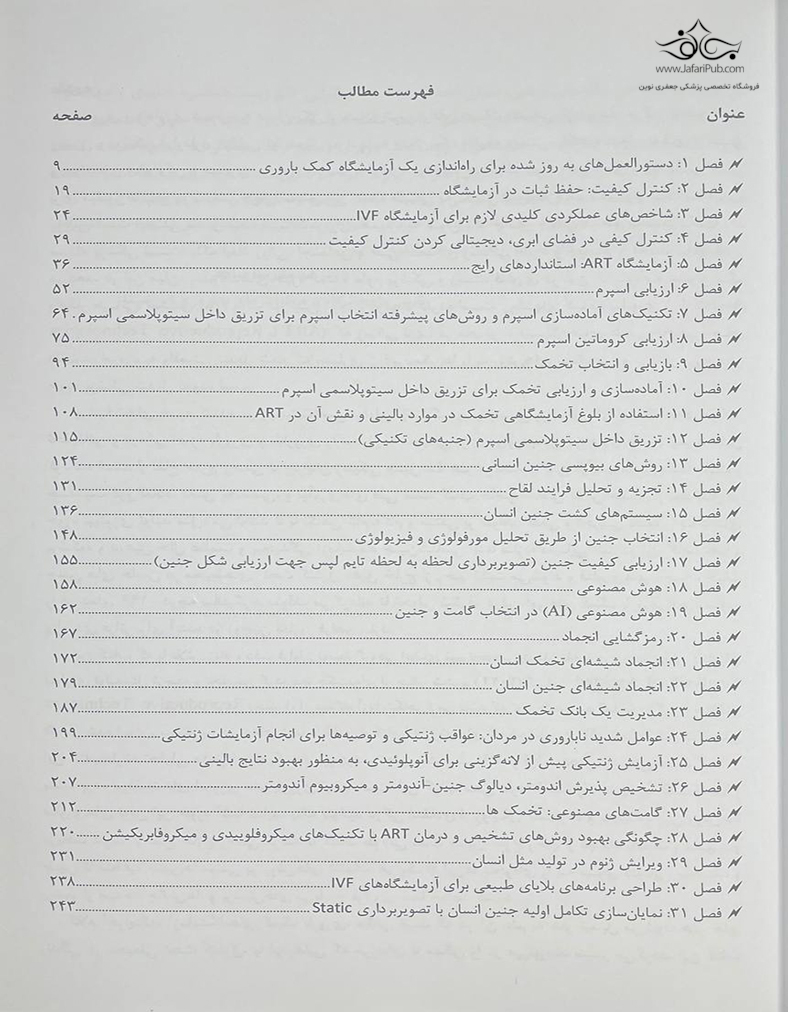 www.JafariPub.com
فروشگاه تخصصی پزشکی جعفری نوین
فهرست مطالب
عنوان صفحه
فصل ۱: دستورالعمل‌های به روز شده برای راه‌اندازی یک آزمایشگاه کمک باروری ۹
فصل ۲: کنترل کیفیت: حفظ ثبات در آزمایشگاه ۱۹
فصل ۳: شاخص‌های عملکردی کلیدی لازم برای آزمایشگاه IVF ۲۴
فصل ۴: کنترل کیفی در فضای ابری، دیجیتالی کردن کنترل کیفیت ۲۹
فصل ۵: آزمایشگاه ART: استانداردهای رایج ۳۶
فصل ۶: ارزیابی اسپرم ۵۲
فصل ۷: تکنیک‌های آماده‌سازی اسپرم و روش‌های پیشرفته انتخاب اسپرم برای تزریق داخل سیتوپلاسمی اسپرم ۶۴
فصل ۸: ارزیابی کروماتین اسپرم ۷۵
فصل ۹: بازیابی و انتخاب تخمک ۹۴
فصل ۱۰: آماده‌سازی و ارزیابی تخمک برای تزریق داخل سیتوپلاسمی اسپرم ۱۰۱
فصل ۱۱: استفاده از بلوغ آزمایشگاهی تخمک در موارد بالینی و نقش آن در ART ۱۰۸
فصل ۱۲: تزریق داخل سیتوپلاسمی اسپرم (جنبه‌های تکنیکی) ۱۱۵
فصل ۱۳: روش‌های بیوپسی جنین انسانی ۱۲۴
فصل ۱۴: تجزیه و تحلیل فرایند لقاح ۱۳۱
فصل ۱۵: سیستم‌های کشت جنین انسان ۱۳۶
فصل ۱۶: انتخاب جنین از طریق تحلیل مورفولوژی و فیزیولوژی ۱۴۸
فصل ۱۷: ارزیابی کیفیت جنین (تصویربرداری لحظه به لحظه تایم لپس جهت ارزیابی شکل جنین) ۱۵۵
فصل ۱۸: هوش مصنوعی ۱۵۸
فصل ۱۹: هوش مصنوعی (AI) در انتخاب گامت و جنین ۱۶۲
فصل ۲۰: رمزگشایی انجماد ۱۶۷
فصل ۲۱: انجماد شیشه‌ای تخمک انسان ۱۷۲
فصل ۲۲: انجماد شیشه‌ای جنین انسان ۱۷۹
فصل ۲۳: مدیریت یک بانک تخمک ۱۸۷
فصل ۲۴: عوامل شدید ناباروری در مردان: عواقب ژنتیکی و توصیه‌ها برای انجام آزمایشات ژنتیکی ۱۹۹
فصل ۲۵: آزمایش ژنتیکی پیش از لانه‌گزینی برای آنوپلوئیدی، به منظور بهبود نتایج بالینی ۲۰۴
فصل ۲۶: تشخیص پذیرش اندومتر، دیالوگ جنین-آندومتر و میکروبیوم آندومتر ۲۰۷
فصل ۲۷: گامت‌های مصنوعی: تخمک ها ۲۱۲
فصل ۲۸: چگونگی بهبود روش‌های تشخیص و درمان ART با تکنیک‌های میکروفلوییدی و میکروفابریکیشن ۲۲۰
فصل ۲۹: ویرایش ژنوم در تولید مثل انسان ۲۳۱
فصل ۳۰: طراحی برنامه‌های بلایای طبیعی برای آزمایشگاه‌های IVF ۲۳۸
فصل ۳۱: نمایان‌سازی تکامل اولیه جنین انسان با تصویربرداری Static ۲۴۳